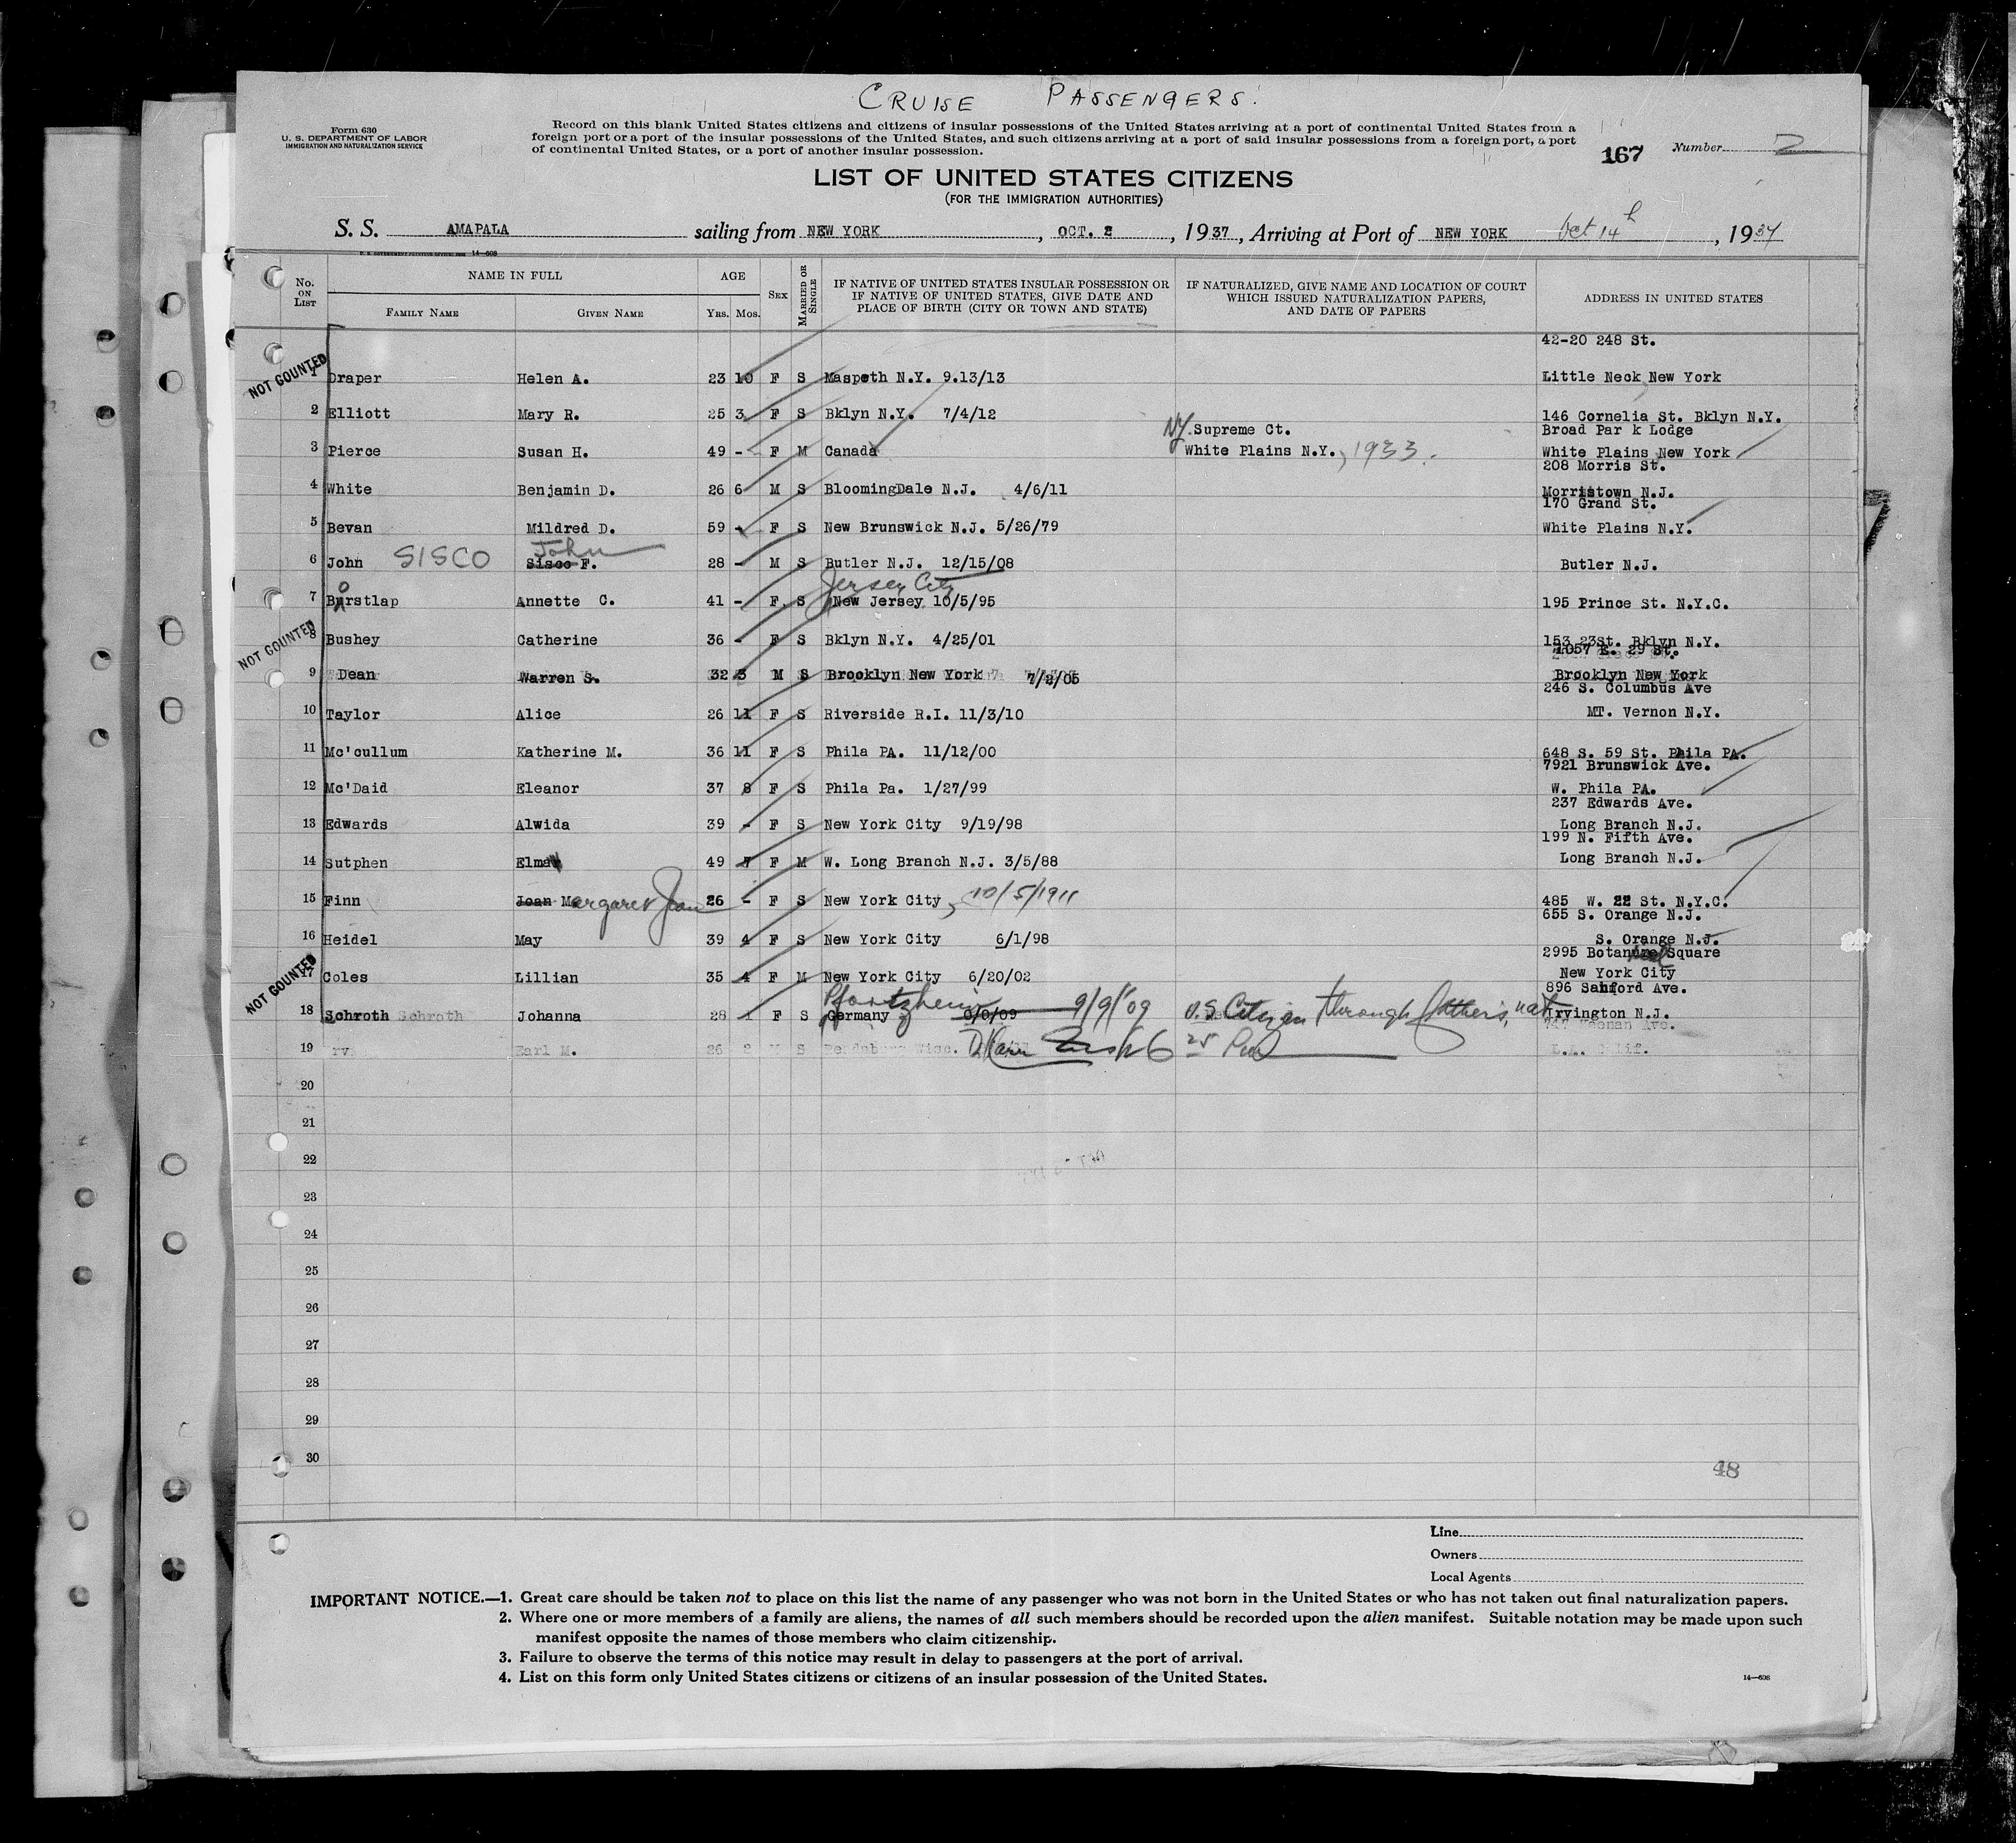 CRUISE PASSENGERS.
Form 630
U. S. DEPARTMENT OF LABOR
IMMIGRATION AND NATURALIZATION SERVICE
Record on this blank United States citizens and citizens of insular possessions of the United States arriving at a port of continental United States from a
foreign port or a port of the insular possessions of the United States, and such citizens arriving at a port of said insular possessions from a foreign port, a port
of continental United States, or a port of another insular possession.
167 Number 2
LIST OF UNITED STATES CITIZENS
(FOR THE IMMIGRATION AUTHORITIES)
S. S. AMAPALA sailing from NEW YORK, OCT. 2, 1937, Arriving at Port of NEW YORK Oct 14th, 1937
No. ON LIST
NAME IN FULL
FAMILY NAME
GIVEN NAME
AGE
YRS. MOS.
SEX
MARRIED OR SINGLE
IF NATIVE OF UNITED STATES INSULAR POSSESSION OR
IF NATIVE OF UNITED STATES, GIVE DATE AND
PLACE OF BIRTH (CITY OR TOWN AND STATE)
IF NATURALIZED, GIVE NAME AND LOCATION OF COURT
WHICH ISSUED NATURALIZATION PAPERS,
AND DATE OF PAPERS
ADDRESS IN UNITED STATES
42-20 248 St.
NOT COUNTED
1 Draper Helen A. 23 10 F S Maspeth N.Y. 9.13/13 Little Neck New York
2 Elliott Mary R. 25 3 F S Bklyn N.Y. 7/4/12 146 Cornelia St. Bklyn N.Y.
NY. Supreme Ct. Broad Par k Lodge
3 Pierce Susan H. 49 - F M Canada White Plains N.Y., 1933. White Plains New York
208 Morris St.
4 White Benjamin D. 26 6 M S BloomingDale N.J. 4/6/11 Morristown N.J.
170 Grand St.
5 Bevan Mildred D. 59 - F S New Brunswick N.J. 5/26/79 White Plains N.Y.
John
6 John SISCO Sisco F. 28 - M S Butler N.J. 12/15/08 Butler N.J.
Jersey City
7 Borstlap Annette C. 41 - F. S New Jersey 10/5/95 195 Prince St. N.Y.C.
NOT COUNTED
8 Bushey Catherine 36 - F S Bklyn N.Y. 4/25/01 153 23St. Bklyn N.Y.
1057 E. 29 St.
9 Dean Warren S. 32 3 M S Brooklyn New York 7/2/05 Brooklyn New York
246 S. Columbus Ave
10 Taylor Alice 26 11 F S Riverside R.I. 11/3/10 MT. Vernon N.Y.
11 Mc'cullum Katherine M. 36 11 F S Phila PA. 11/12/00 648 S. 59 St. Phila PA.
7921 Brunswick Ave.
12 Mc'Daid Eleanor 37 8 F S Phila Pa. 1/27/99 W. Phila PA.
237 Edwards Ave.
13 Edwards Alwida 39 - F S New York City 9/19/98 Long Branch N.J.
199 N. Fifth Ave.
14 Sutphen Elma 49 7 F M W. Long Branch N.J. 3/5/88 Long Branch N.J.
15 Finn Joan Margaret Joan 26 - F S New York City, 10/5/1911 485 W. 22 St. N.Y.C.
655 S. Orange N.J.
16 Heidel May 39 4 F S New York City 6/1/98 S. Orange N.J.
2995 Botan Square
NOT COUNTED
17 Coles Lillian 35 4 F M New York City 6/20/02 New York City
Pfortzheim 9/9/09 896 Sanford Ave.
18 Schroth Schroth Johanna 28 1 F S Germany 0/0/09 U.S. Citizen through father's nat. Irvington N.J.
19 Earl M. 26 2 S Wisc. 25 L.A. Calif.
20
21
22
23
24
25
26
27
28
29
30
48
Line
Owners
Local Agents
IMPORTANT NOTICE.—1. Great care should be taken not to place on this list the name of any passenger who was not born in the United States or who has not taken out final naturalization papers.
2. Where one or more members of a family are aliens, the names of all such members should be recorded upon the alien manifest. Suitable notation may be made upon such
manifest opposite the names of those members who claim citizenship.
3. Failure to observe the terms of this notice may result in delay to passengers at the port of arrival.
4. List on this form only United States citizens or citizens of an insular possession of the United States.
14—608